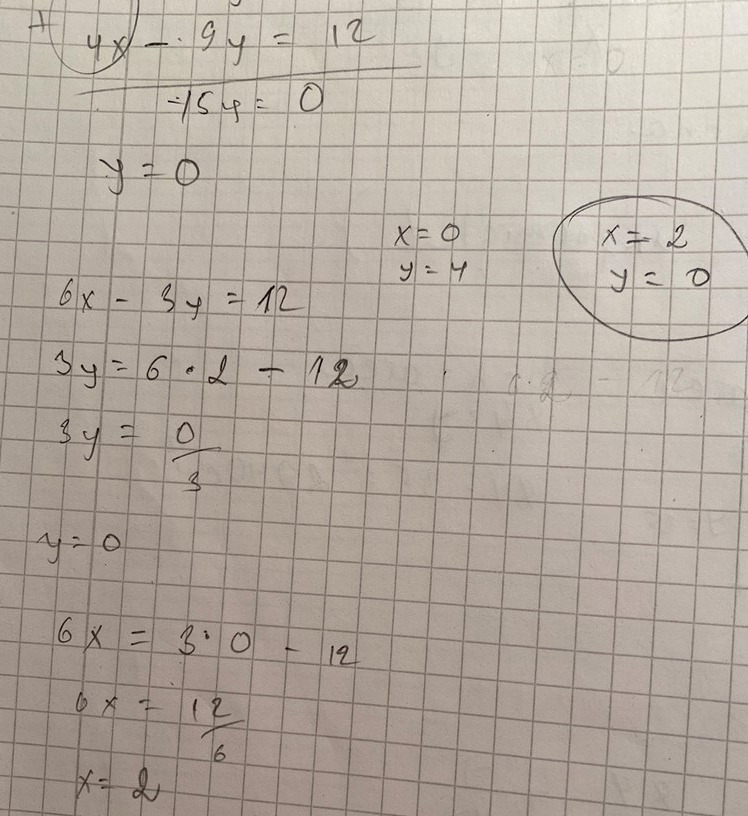 + 4x - 9y = 12
-15y = 0
y = 0
x = 0
y = 4
x = 2
y = 0
6x - 3y = 12
3y = 6 · 2 - 12
3y = 0/3
y = 0
6x = 3 · 0 - 12
6x = 12/6
x = 2